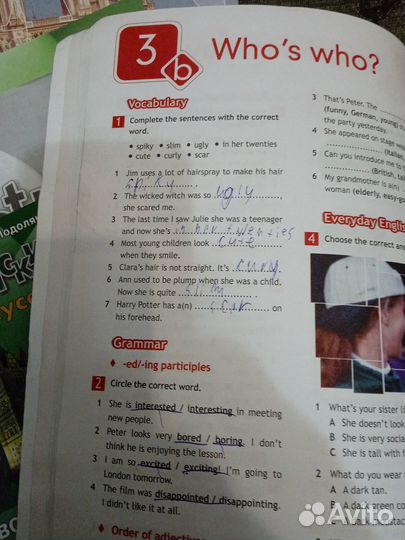 3
b
Who's who?
Vocabulary
1 Complete the sentences with the correct
word.
• spiky • slim • ugly • in her twenties
• cute • curly • scar
1 Jim uses a lot of hairspray to make his hair
spiky.
2 The wicked witch was so ugly,
she scared me.
3 The last time I saw Julie she was a teenager
and now she's in her twenties
4 Most young children look cute
when they smile.
5 Clara's hair is not straight. It's curly.
6 Ann used to be plump when she was a child.
Now she is quite slim
7 Harry Potter has a(n) scar on
his forehead.
Grammar
♦ -ed/-ing participles
2 Circle the correct word.
1 She is interested / interesting in meeting
new people.
2 Peter looks very bored / boring. I don't
think he is enjoying the lesson.
3 I am so excited / exciting! I'm going to
London tomorrow.
4 The film was disappointed / disappointing.
I didn't like it at all.
♦ Order of adjectives
3 That's Peter. The
(funny, German, young)
the party yesterday.
4 She appeared on stage
(Italian,
5 Can you introduce me to
(British,
6 My grandmother is a(n)
woman (elderly, easy-go
Everyday Englis
4 Choose the correct ans
1 What's your sister li
A She doesn't look
B She is very socia
C She is tall with f
2 What do you wear
A A dark tan.
B A dark green co
C
Avito